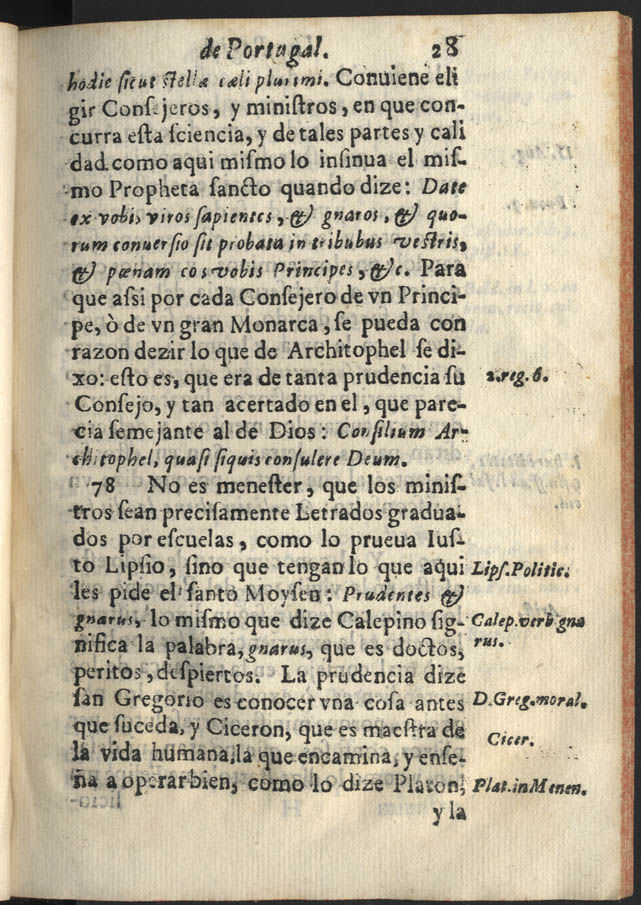 de Portugal. 28
hodie sicut stellæ cæli plurimi. Conuiene eli
gir Consejeros, y ministros, en que con-
curra esta sciencia, y de tales partes y cali
dad como aqui mismo lo insinua el mis-
mo Propheta sancto quando dize: Date
ex vobis viros sapientes, & gnaros, & quo-
rum conuersio sit probata in tribubus vestris,
& pœnam eos vobis Principes, &c. Para
que assi por cada Consejero de vn Princi-
pe, ò de vn gran Monarca, se pueda con
razon dezir lo que de Architophel se di-
xo: esto es, que era de tanta prudencia su 2.reg.6.
Consejo, y tan acertado en el, que pare-
cia semejante al de Dios: Consilium Ar-
chitophel, quasi siquis consulere Deum.
78 No es menester, que los minis-
tros sean precisamente Letrados gradua-
dos por escuelas, como lo prueua Ius-
to Lipsio, sino que tengan lo que aqui Lips.Politic.
les pide el santo Moysen: Prudentes &
gnarus, lo mismo que dize Calepino sig- Calep.verb gna
nifica la palabra, gnarus, que es doctos, rus.
peritos, despiertos. La prudencia dize
san Gregorio es conocer vna cosa antes D.Greg.moral.
que suceda, y Ciceron, que es maestra de Cicer.
la vida humana, la que encamina, y ense-
ña a operar bien, como lo dize Platon, Plat.in Menen.
y la